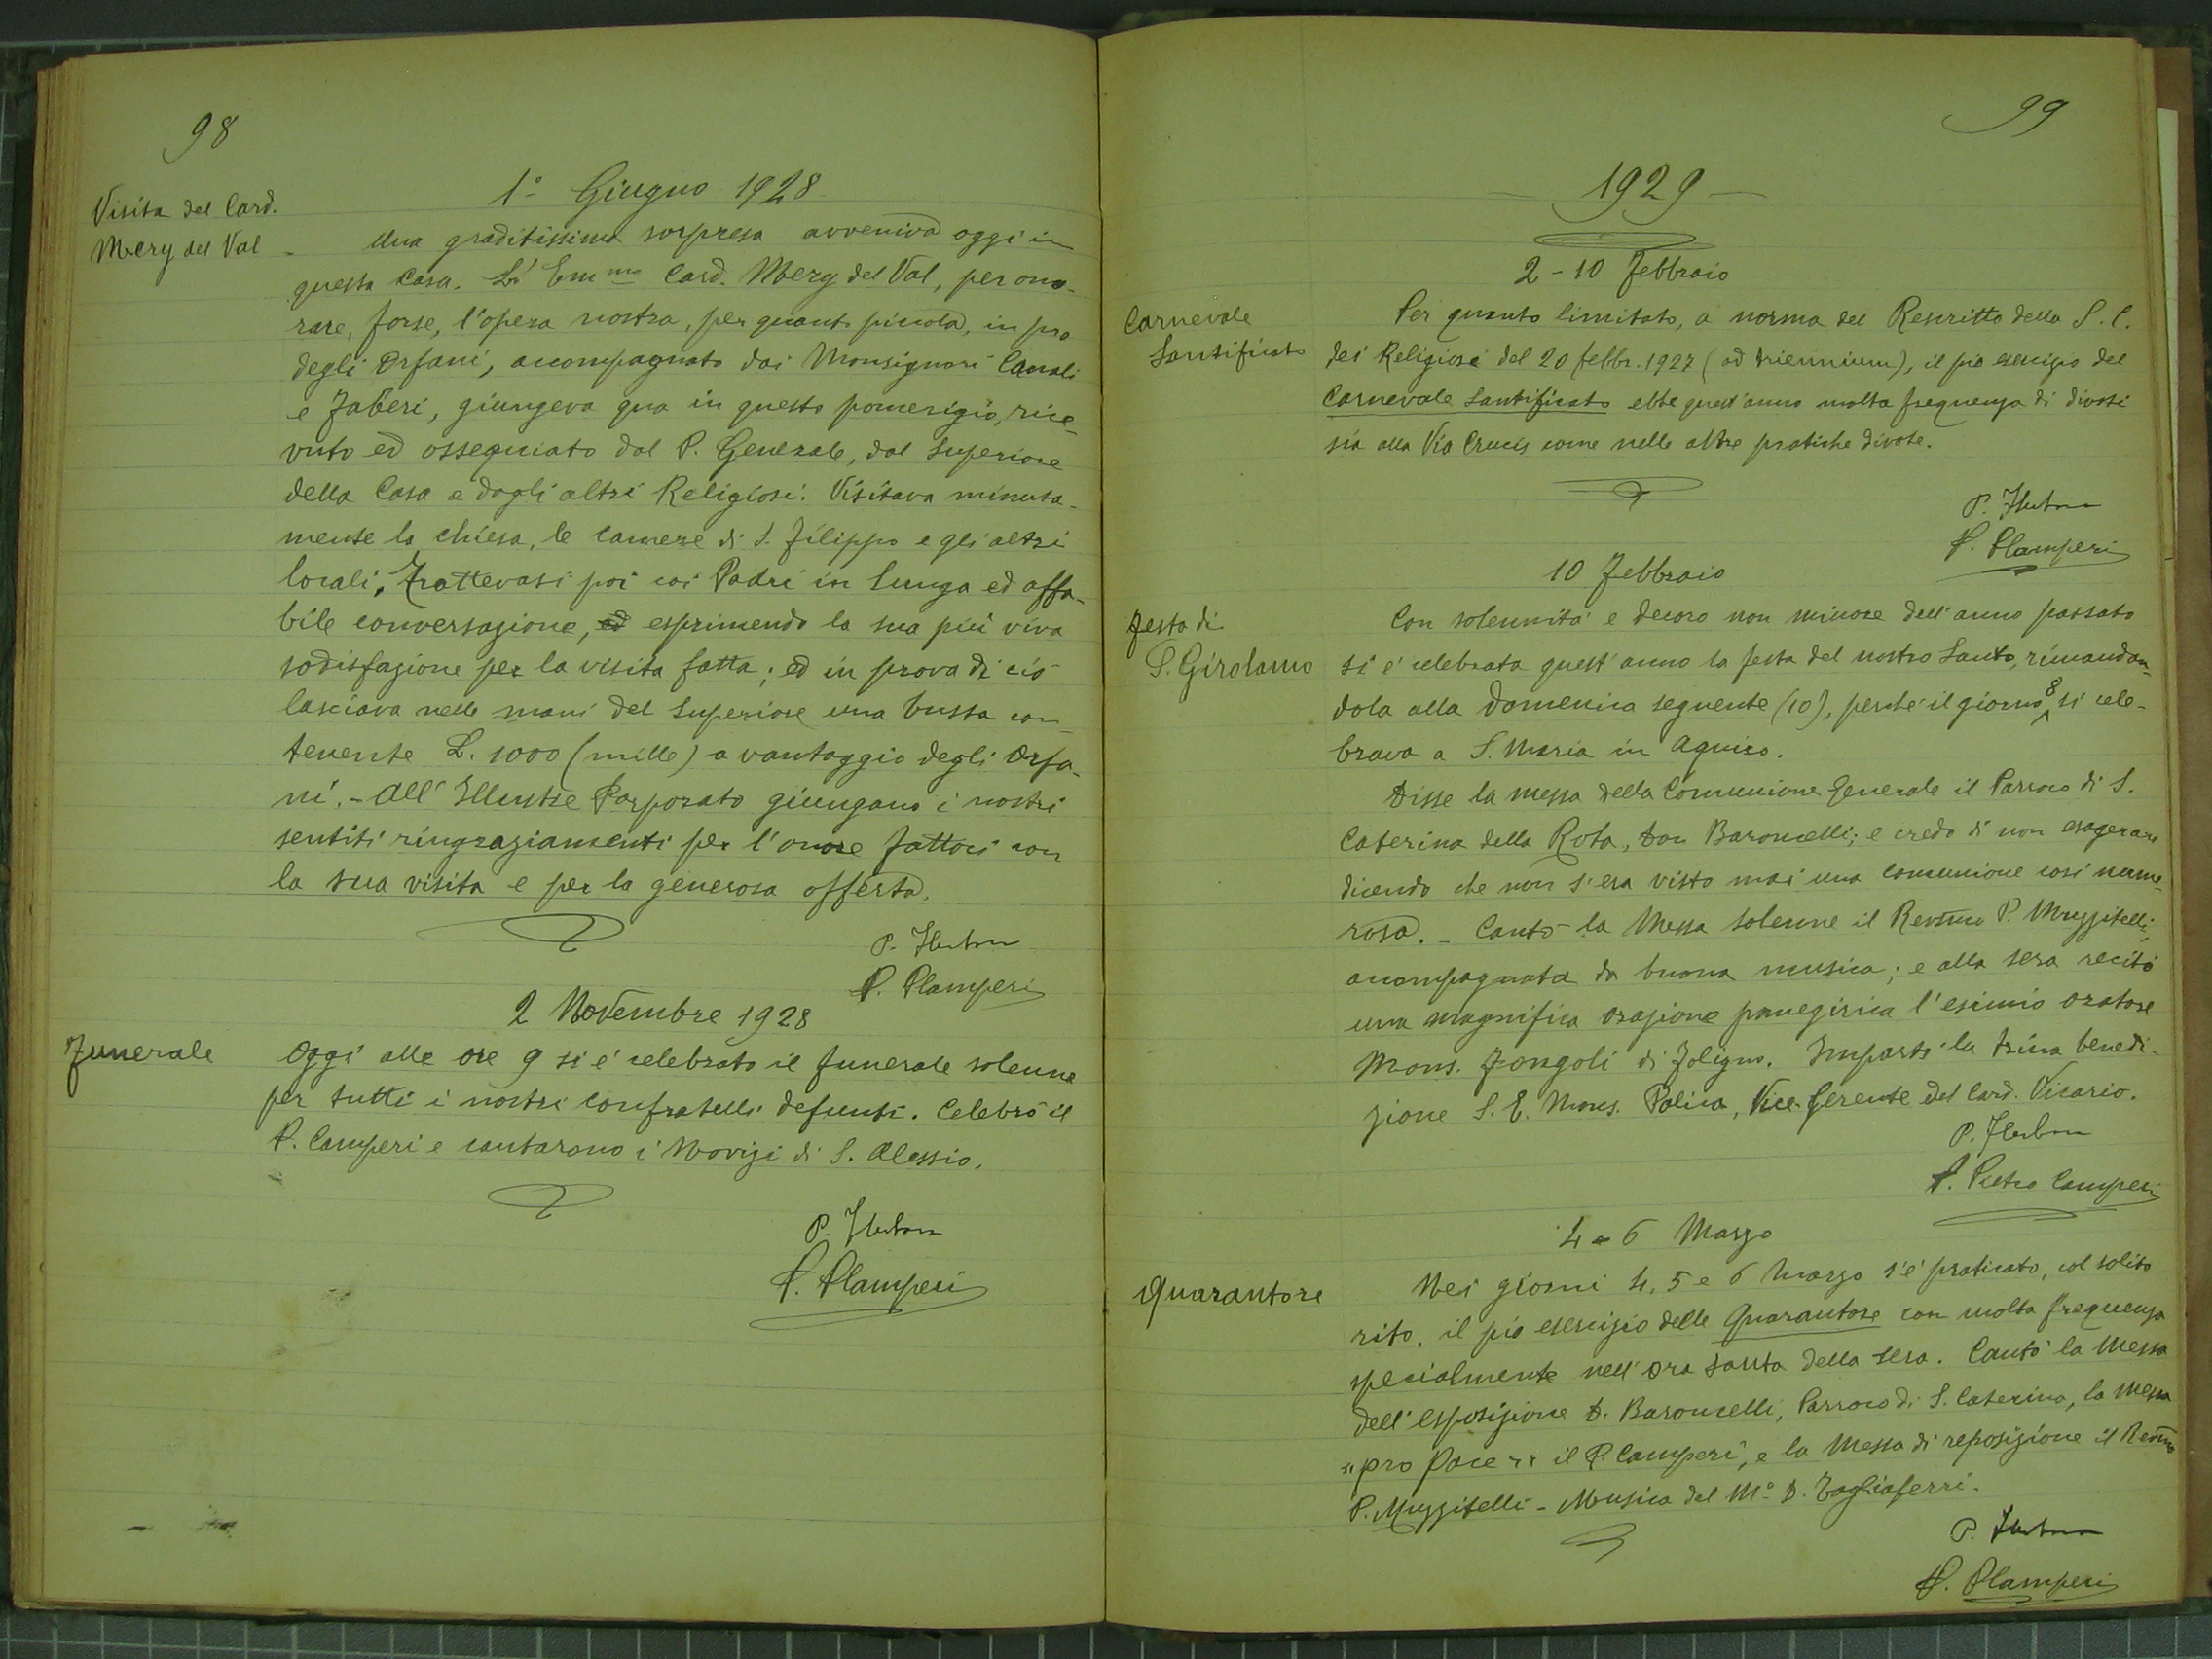 98
1º Giugno 1928
Visita del Card.
Mery del Val -
Una graditissima sorpresa avveniva oggi in
questa Casa. L' Emmo Card. Mery del Val, per ono-
rare, forse, l'opera nostra, per quanto piccola, in pro
degli Orfani, accompagnato dai Monsignori Canali
e Faberi, giungeva qua in questo pomerigio, rice-
vuto ed ossequiato dal P. Generale, dal Superiore
della Casa e dagli altri Religiosi. Visitava minuta-
mente la chiesa, le camere di S. Filippo e gli altri
locali. Trattevasi poi coi Padri in lunga ed affa-
bile conversazione, ed esprimendo la sua più viva
sodisfazione per la visita fatta; ed in prova di ciò
lasciava nelle mani del Superiore una busta con-
tenente L. 1000 (mille) a vantaggio degli Orfa-
ni. - All' Illustre Porporato giungano i nostri
sentiti ringraziamenti per l'onore fattoci con
la sua visita e per la generosa offerta.
P.
P. PCamperi
2 Novembre 1928
Funerale
Oggi alle ore 9 si è celebrato il funerale solenne
per tutti i nostri confratelli defunti. Celebrò il
P. Camperi e cantarono i Novizi di S. Alessio.
P.
P. PCamperi
99
- 1929 -
2 - 10 Febbraio
Carnevale
Santificato
Per quanto limitato, a norma del Rescritto della S. C.
dei Religiosi del 20 febbr. 1927 (ad triennium), il pio esercizio del
Carnevale Santificato ebbe quest'anno molta frequenza di divoti
sia alla Via Crucis come nelle altre pratiche divote.
P.
P. PCamperi
10 Febbraio
Festa di
S. Girolamo
Con solennità e decoro non minore dell'anno passato
si è celebrata quest'anno la festa del nostro Santo, rimandan-
dola alla Domenica seguente (10), perchè il giorno 8 si cele-
brava a S. Maria in Aquiro.
Disse la messa della Comunione Generale il Parroco di S.
Caterina della Rota, Don Baroncelli; e credo di non esagerare
dicendo che non s'era visto mai una comunione così nume-
rosa. - Cantò la Messa solenne il Revmo P. Muzzitelli,
accompagnata da buona musica; e alla sera recitò
una magnifica orazione panegirica l'esimio oratore
Mons. Zongoli di Foligno. Impartì la trina benedi-
zione S. E. Mons. Palica, Vice-Gerente del Card. Vicario.
P.
P. Pietro Camperi
4 - 6 Marzo
Quarantore
Nei giorni 4, 5 e 6 Marzo s'è praticato, col solito
rito, il pio esercizio delle Quarantore con molta frequenza
specialmente nell'Ora Santa della sera. Cantò la Messa
dell'esposizione D. Baroncelli, Parroco di S. Caterina, la Messa
"pro Pace" il P. Camperi, e la Messa di reposizione il Revmo
P. Muzzitelli - Musica del Mº D. Tagliaferri.
P.
P. PCamperi